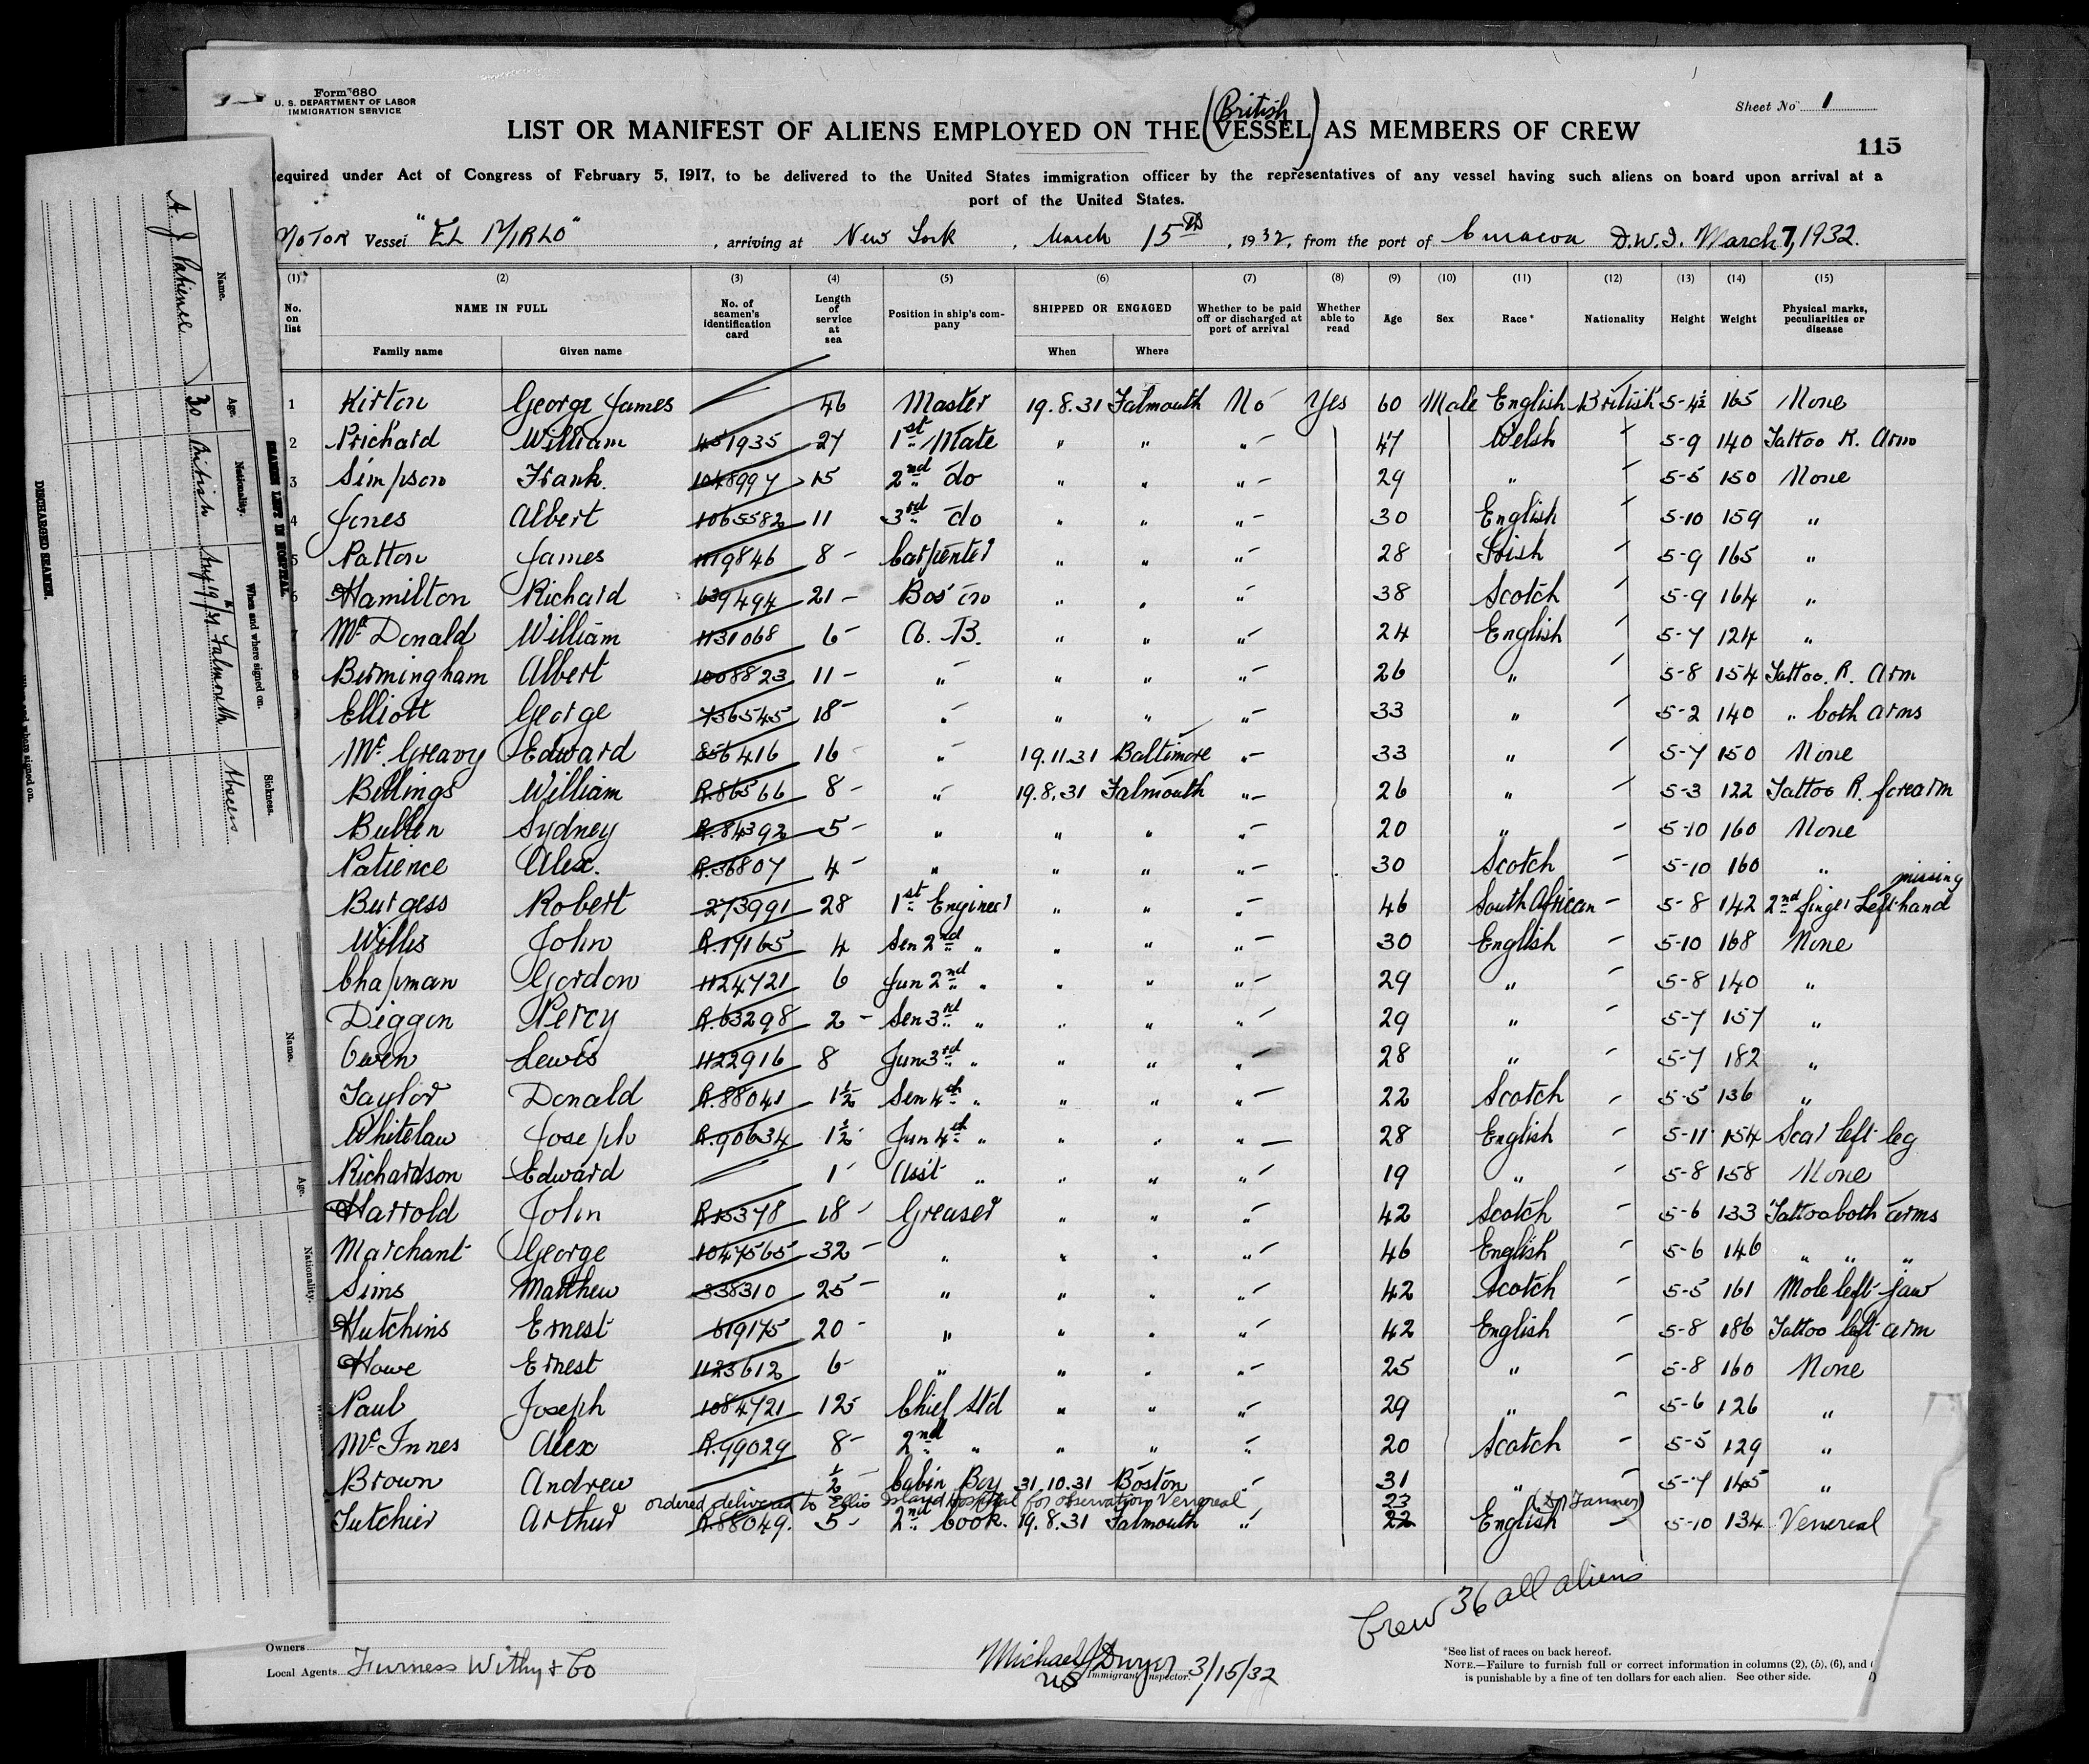 Form 680
U. S. DEPARTMENT OF LABOR
IMMIGRATION SERVICE
Sheet No 1
(British
LIST OR MANIFEST OF ALIENS EMPLOYED ON THE VESSEL) AS MEMBERS OF CREW
115
equired under Act of Congress of February 5, 1917, to be delivered to the United States immigration officer by the representatives of any vessel having such aliens on board upon arrival at a
port of the United States.
MOTOR Vessel "EL MIRLO", arriving at New York, March 15th, 1932, from the port of Curacoa D.W.I. March 7, 1932.
(1) (2) (3) (4) (5) (6) (7) (8) (9) (10) (11) (12) (13) (14) (15)
No. on list NAME IN FULL No. of seamen's identification card Length of service at sea Position in ship's company SHIPPED OR ENGAGED Whether to be paid off or discharged at port of arrival Whether able to read Age Sex Race* Nationality Height Weight Physical marks, peculiarities or disease
Family name Given name When Where
1 Kirton George James 46 Master 19.8.31 Falmouth No Yes 60 Male English British 5-4½ 165 None
2 Prichard William 451935 27 1st Mate " " " 47 Welsh 5-9 140 Tattoo R. Arm
3 Simpson Frank 1048997 15 2nd do " " " 29 " 5-5 150 None
4 Jones Albert 1065582 11 3rd do " " " 30 English 5-10 159 "
5 Patton James 1119846 8 Carpenter " " " 28 Irish 5-9 165 "
6 Hamilton Richard 639494 21 Bos'on " " " 38 Scotch 5-9 164 "
7 Mc Donald William 1131068 6 A.B. " " " 24 English 5-7 124 "
8 Birmingham Albert 1008823 11 " " " " 26 " 5-8 154 Tattoo. R. Arm
Elliott George 736545 18 " " " " 33 " 5-2 140 " both arms
Mc Greavy Edward 856416 16 " 19.11.31 Baltimore " 33 " 5-7 150 None
Billings William R.86566 8 " 19.8.31 Falmouth " 26 " 5-3 122 Tattoo R. forearm
Bullen Sydney R.84392 5 " " " " 20 " 5-10 160 None
Patience Alex. R.36807 4 " " " " 30 Scotch 5-10 160 "
missing
Burgess Robert 273991 28 1st Engineer " " " 46 South African 5-8 142 2nd finger Left hand
Willis John R.79165 4 Sen 2nd " " " " 30 English 5-10 168 None
Chapman Gordon 1124721 6 Jun 2nd " " " " 29 " 5-8 140 "
Diggen Percy R.63298 2 Sen 3rd " " " " 29 " 5-7 157 "
Owen Lewis 1122916 8 Jun 3rd " " " " 28 " 5-7 182 "
Taylor Donald R.88041 1½ Sen 4th " " " " 22 Scotch 5-5 136 "
Whitelaw Joseph R.90634 1½ Jun 4th " " " " 28 English 5-11 154 Scar left leg
Richardson Edward 1 Asst " " " " 19 " 5-8 158 None
Harrold John R.15378 18 Greaser " " " 42 Scotch 5-6 133 Tattoo both arms
Marchant George 1047565 32 " " " " 46 English 5-6 146 " " "
Sims Matthew 338310 25 " " " " 42 Scotch 5-5 161 Mole left jaw
Hutchins Ernest 619175 20 " " " " 42 English 5-8 186 Tattoo left arm
Howe Ernest 1123612 6 " " " " 25 " 5-8 160 None
Paul Joseph 1084721 12 Chief Std " " " 29 " 5-6 126 "
Mc Innes Alex R.99029 8 2nd " " " " 20 Scotch 5-5 129 "
Brown Andrew ½ Cabin Boy 31.10.31 Boston " 31 " 5-7 145 "
ordered delivered to Ellis Island Hospital for observation Venereal 23 (Dr Fanner)
Tutchier Arthur R.88049. 5 2nd Cook. 19.8.31 Falmouth " 22 English 5-10 134 Venereal
Crew 36 all aliens
Owners
Local Agents Furness Withy & Co
Michael J Dwyer 3/15/32
US Immigrant Inspector.
*See list of races on back hereof.
NOTE.—Failure to furnish full or correct information in columns (2), (5), (6), and
is punishable by a fine of ten dollars for each alien. See other side.
DISCHARGED SEAMEN.
SEAMEN LEFT IN HOSPITAL
Name. Age. Nationality. When and where signed on. Sickness.
A. J. Patience 30 British Aug 19th/31 Falmouth Abscess
Name. Age. Nationality.